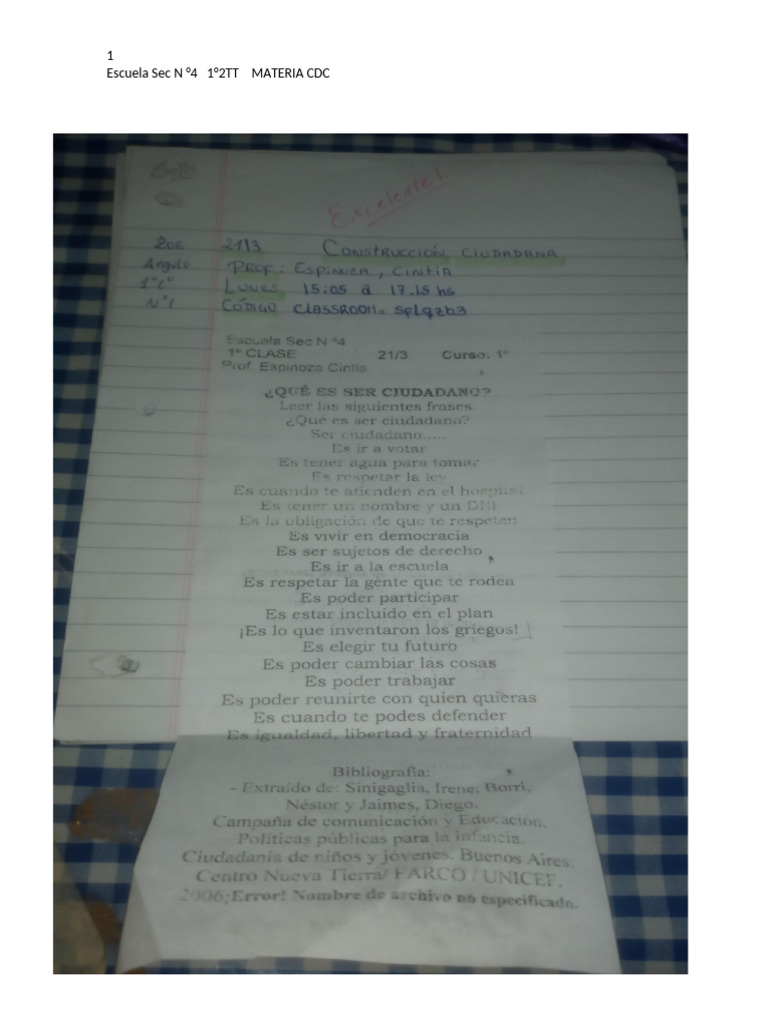 1
Escuela Sec N °4 1°2TT MATERIA CDC
Excelente!
2do 21/3 CONSTRUCCIÓN CIUDADANA
Angulo PROF: ESPINOZA, CINTIA
1°2° LUNES 15:05 a 17.15 hs
N°1 CÓDIGO CLASSROOM=
Escuela Sec N °4
1° CLASE 21/3 Curso: 1°
Prof. Espinoza Cintia
¿QUÉ ES SER CIUDADANO?
Leer las siguientes frases.
¿Qué es ser ciudadano?
Ser ciudadano.....
Es ir a votar
Es tener agua para tomar
Es respetar la ley
Es cuando te atienden en el hospital
Es tener un nombre y un DNI
Es la obligación de que te respeten
Es vivir en democracia
Es ser sujetos de derecho
Es ir a la escuela
Es respetar la gente que te rodea
Es poder participar
Es estar incluido en el plan
¡Es lo que inventaron los griegos!
Es elegir tu futuro
Es poder cambiar las cosas
Es poder trabajar
Es poder reunirte con quien quieras
Es cuando te podes defender
Es igualdad, libertad y fraternidad
Bibliografía:
- Extraído de: Sinigaglia, Irene; Borri,
Néstor y Jaimes, Diego.
Campaña de comunicación y Educación.
Políticas públicas para la infancia.
Ciudadanía de niños y jóvenes. Buenos Aires.
Centro Nueva Tierra/ FARCO / UNICEF.
2006;Error! Nombre de archivo no especificado.